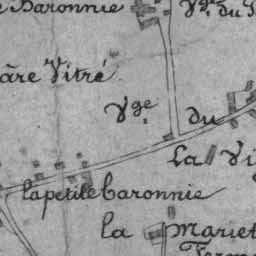 Baronnie
Vge du
âre Vitré
Vge du
La Vi
la petite baronnie
la Mariet
Ferme